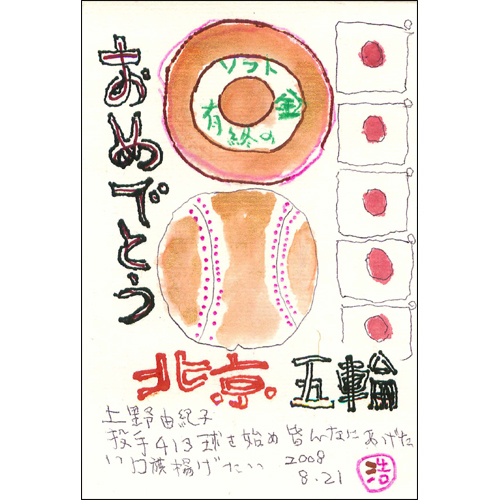 おめでとう
ソフト
有終の
金
北京五輪
上野由紀子
投手413球を始め皆んなにあげた
い日の旗揚げたい
2008
8.21
浩